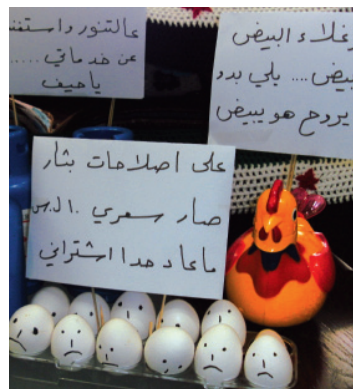 عالتنور واستغن
عن خدماتي .....
يا حيف
غلاء البيض
بيض .... يلي بدو
يروح هو يبيض
على اصلاحات بشار
صار سعري ١٠ ل.س
ماعاد حدا اشتراني